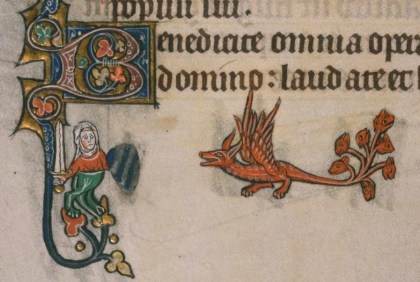 populi sui.
Benedicite omnia oper
domino: laudate et